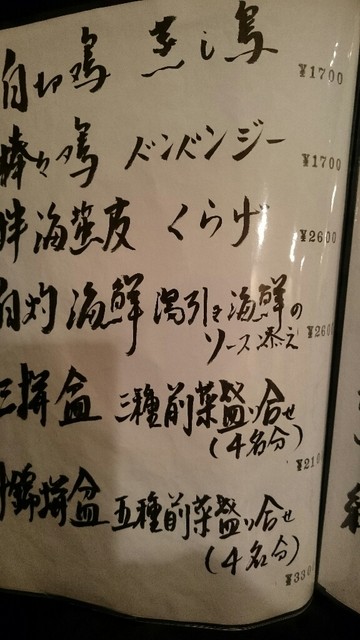 白切鶏 蒸し鳥 ¥1700
棒々鶏 バンバンジー ¥1700
拌海蜇皮 くらげ ¥2600
白灼海鮮 湯引き海鮮の
ソース添え ¥260
三拼盆 三種前菜盛り合せ
(4名分)
¥210
錦拼盆 五種前菜盛り合せ
(4名分)
¥330